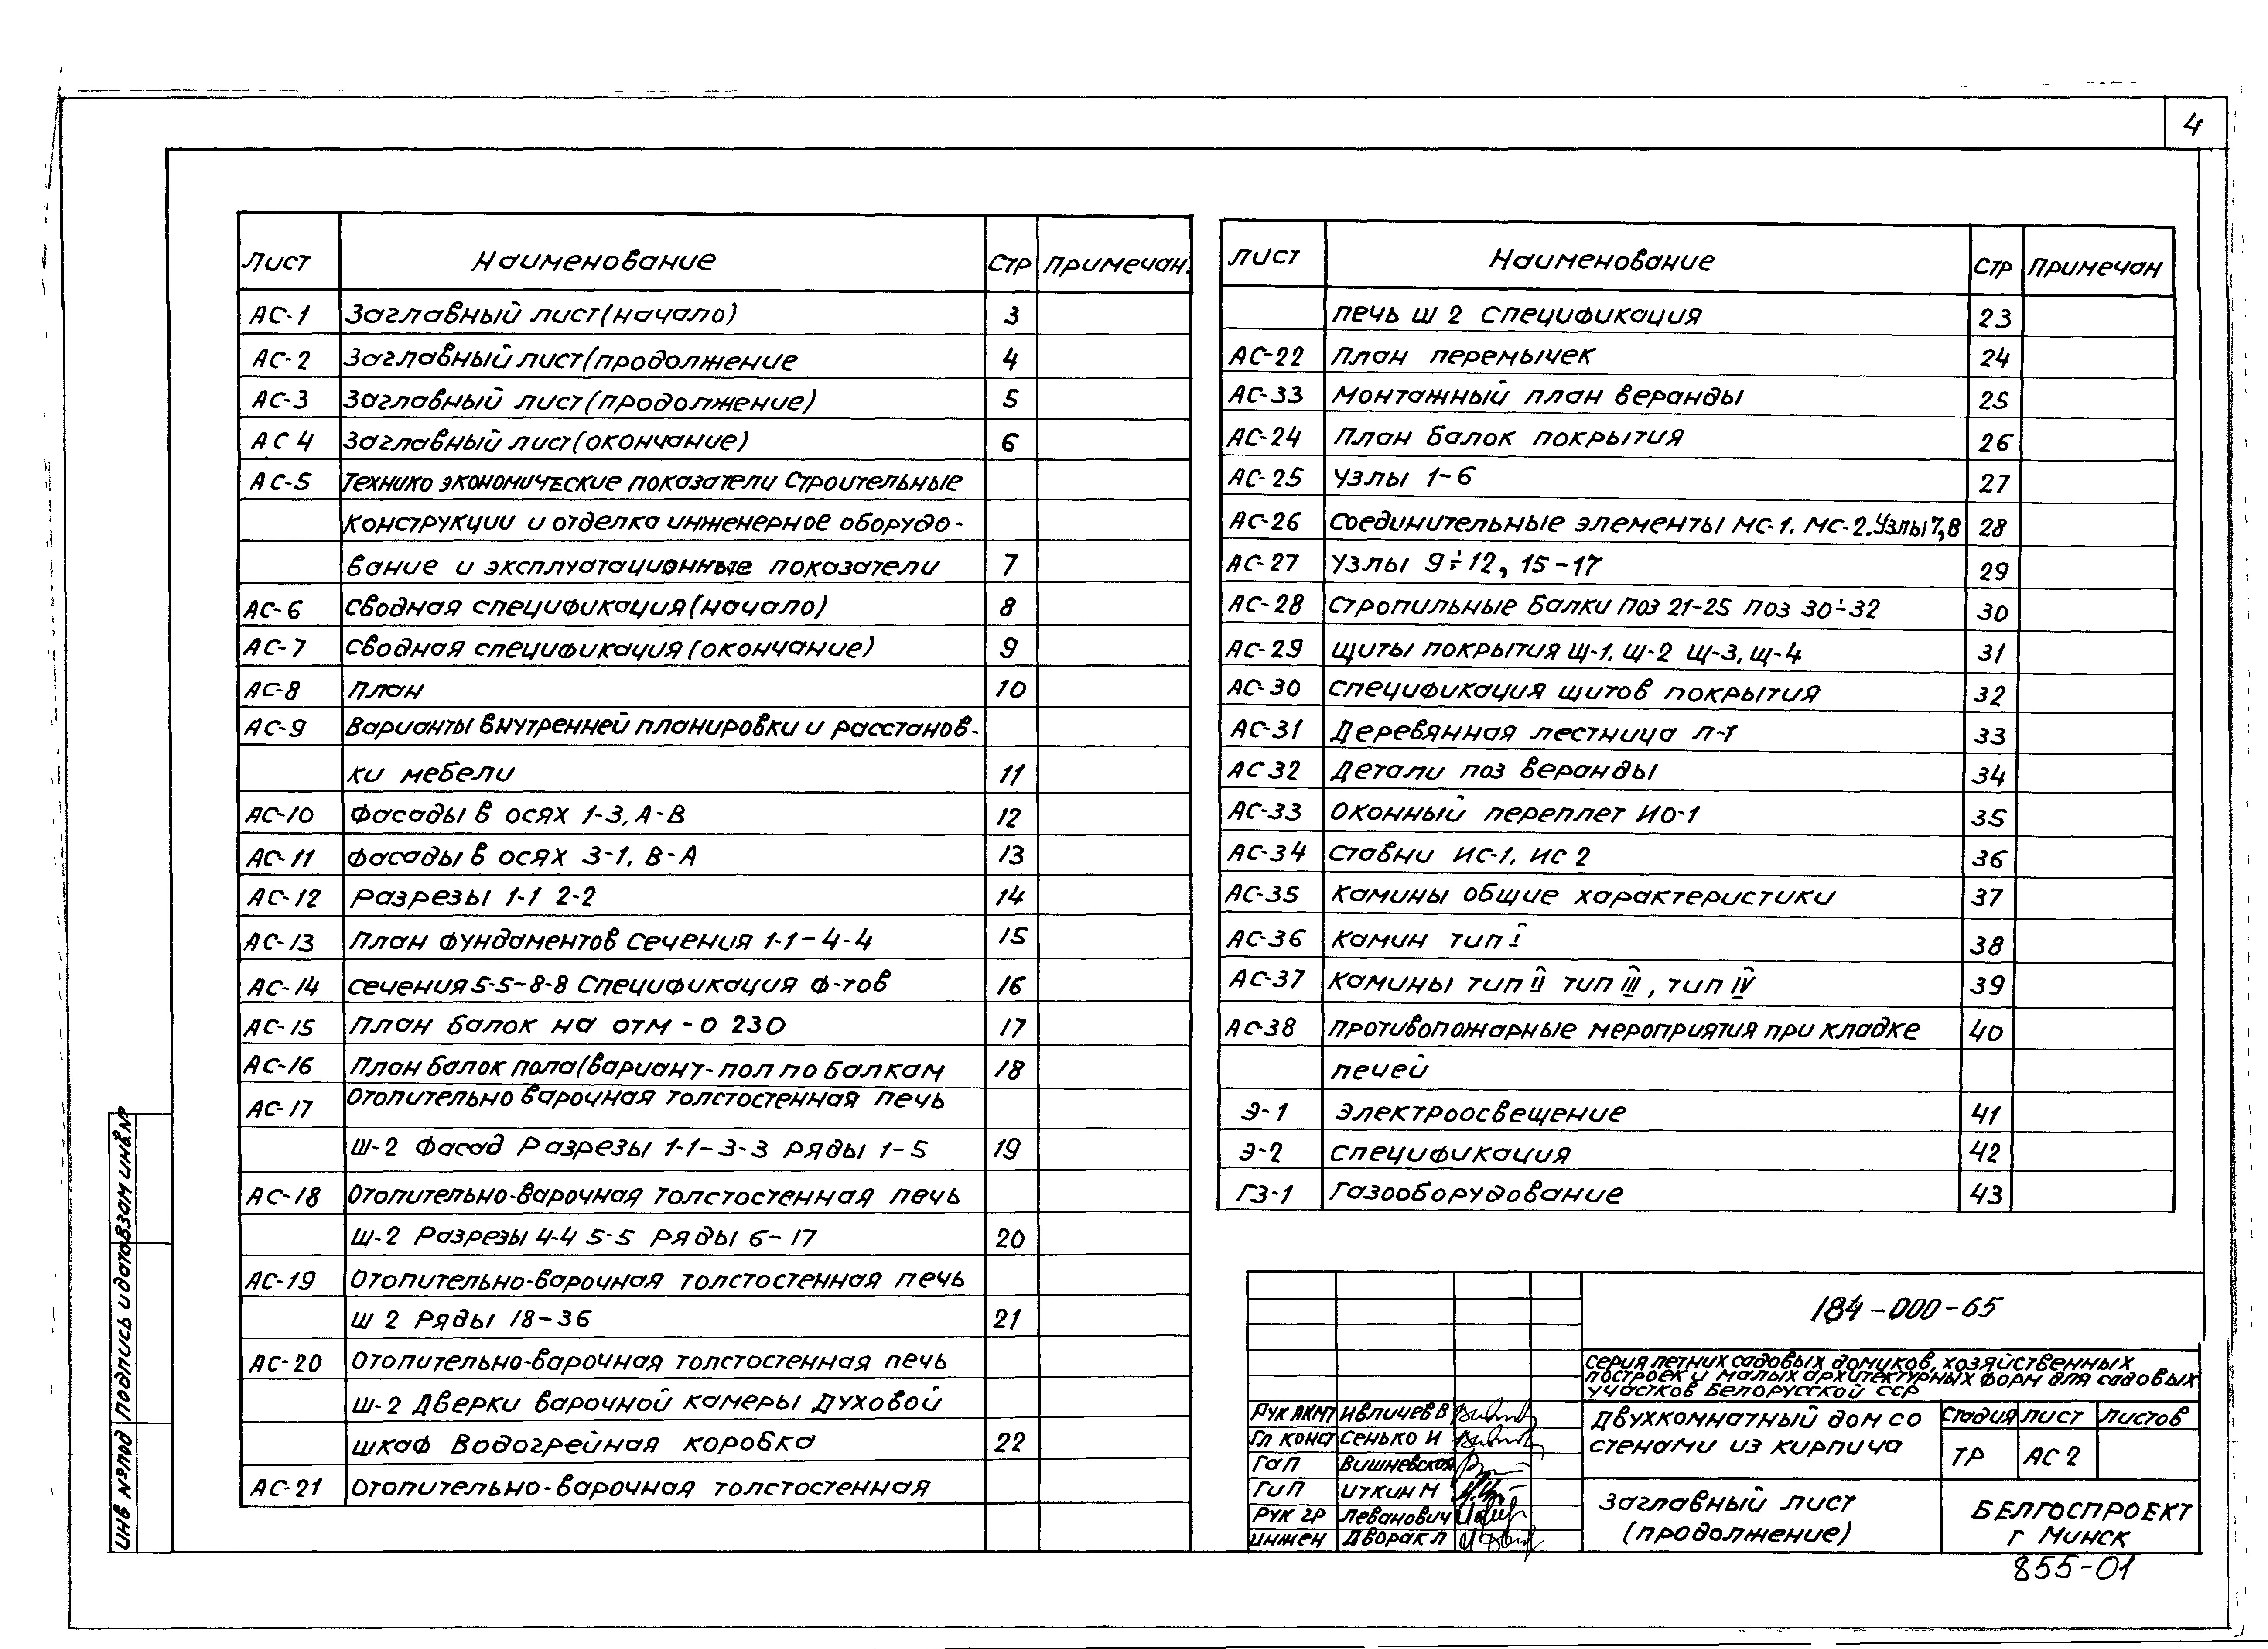 4
Лист Наименование Стр Примечан.
АС-1 Заглавный лист(начало) 3
АС-2 Заглавный лист(продолжение 4
АС-3 Заглавный лист(продолжение) 5
АС 4 Заглавный лист(окончание) 6
АС-5 Технико экономические показатели Строительные
конструкции и отделка инженерное оборудо-
вание и эксплуатационные показатели 7
АС-6 Сводная спецификация(начало) 8
АС-7 Сводная спецификация(окончание) 9
АС-8 План 10
АС-9 Варианты внутренней планировки и расстанов-
ки мебели 11
АС-10 Фасады в осях 1-3, А-В 12
АС-11 Фасады в осях 3-1, В-А 13
АС-12 Разрезы 1-1 2-2 14
АС-13 План фундаментов Сечения 1-1-4-4 15
АС-14 Сечения 5-5-8-8 Спецификация ф-тов 16
АС-15 План балок на отм -0 230 17
АС-16 План балок пола(вариант-пол по балкам 18
АС-17 Отопительно варочная толстостенная печь
Ш-2 Фасад Разрезы 1-1-3-3 Ряды 1-5 19
АС-18 Отопительно-варочная толстостенная печь
Ш-2 Разрезы 4-4 5-5 Ряды 6-17 20
АС-19 Отопительно-варочная толстостенная печь
Ш 2 Ряды 18-36 21
АС-20 Отопительно-варочная толстостенная печь
Ш-2 Дверки варочной камеры Духовой
шкаф Водогрейная коробка 22
АС-21 Отопительно-варочная толстостенная
Лист Наименование Стр Примечан
печь Ш 2 Спецификация 23
АС-22 План перемычек 24
АС-33 Монтажный план веранды 25
АС-24 План балок покрытия 26
АС-25 Узлы 1-6 27
АС-26 Соединительные элементы МС-1, МС-2. Узлы 7, 8 28
АС-27 Узлы 9÷12, 15-17 29
АС-28 Стропильные балки Поз 21-25 Поз 30÷32 30
АС-29 Щиты покрытия Щ-1, Щ-2 Щ-3, Щ-4 31
АС-30 Спецификация щитов покрытия 32
АС-31 Деревянная лестница Л-1 33
АС 32 Детали поз веранды 34
АС-33 Оконный переплет ИО-1 35
АС-34 Ставни ИС-1, ИС 2 36
АС-35 Камины общие характеристики 37
АС-36 Камин тип I 38
АС-37 Камины тип II тип III, тип IV 39
АС-38 Противопожарные мероприятия при кладке 40
печей
Э-1 Электроосвещение 41
Э-2 Спецификация 42
ГЗ-1 Газооборудование 43
184-000-65
Серия летних садовых домиков, хозяйственных
построек и малых архитектурных форм для садовых
участков Белорусской ССР
Рук АКМП Ивличев В
Гл конст Сенько И
ГАП Вишневская
ГИП Иткин М
Рук гр Леванович
Инжен Дворак Л
Двухкомнатный дом со
стенами из кирпича
Стадия Лист Листов
ТР АС 2
Заглавный лист
(продолжение)
БЕЛГОСПРОЕКТ
г Минск
855-01
Инв № под Подпись и дата Взам инв №